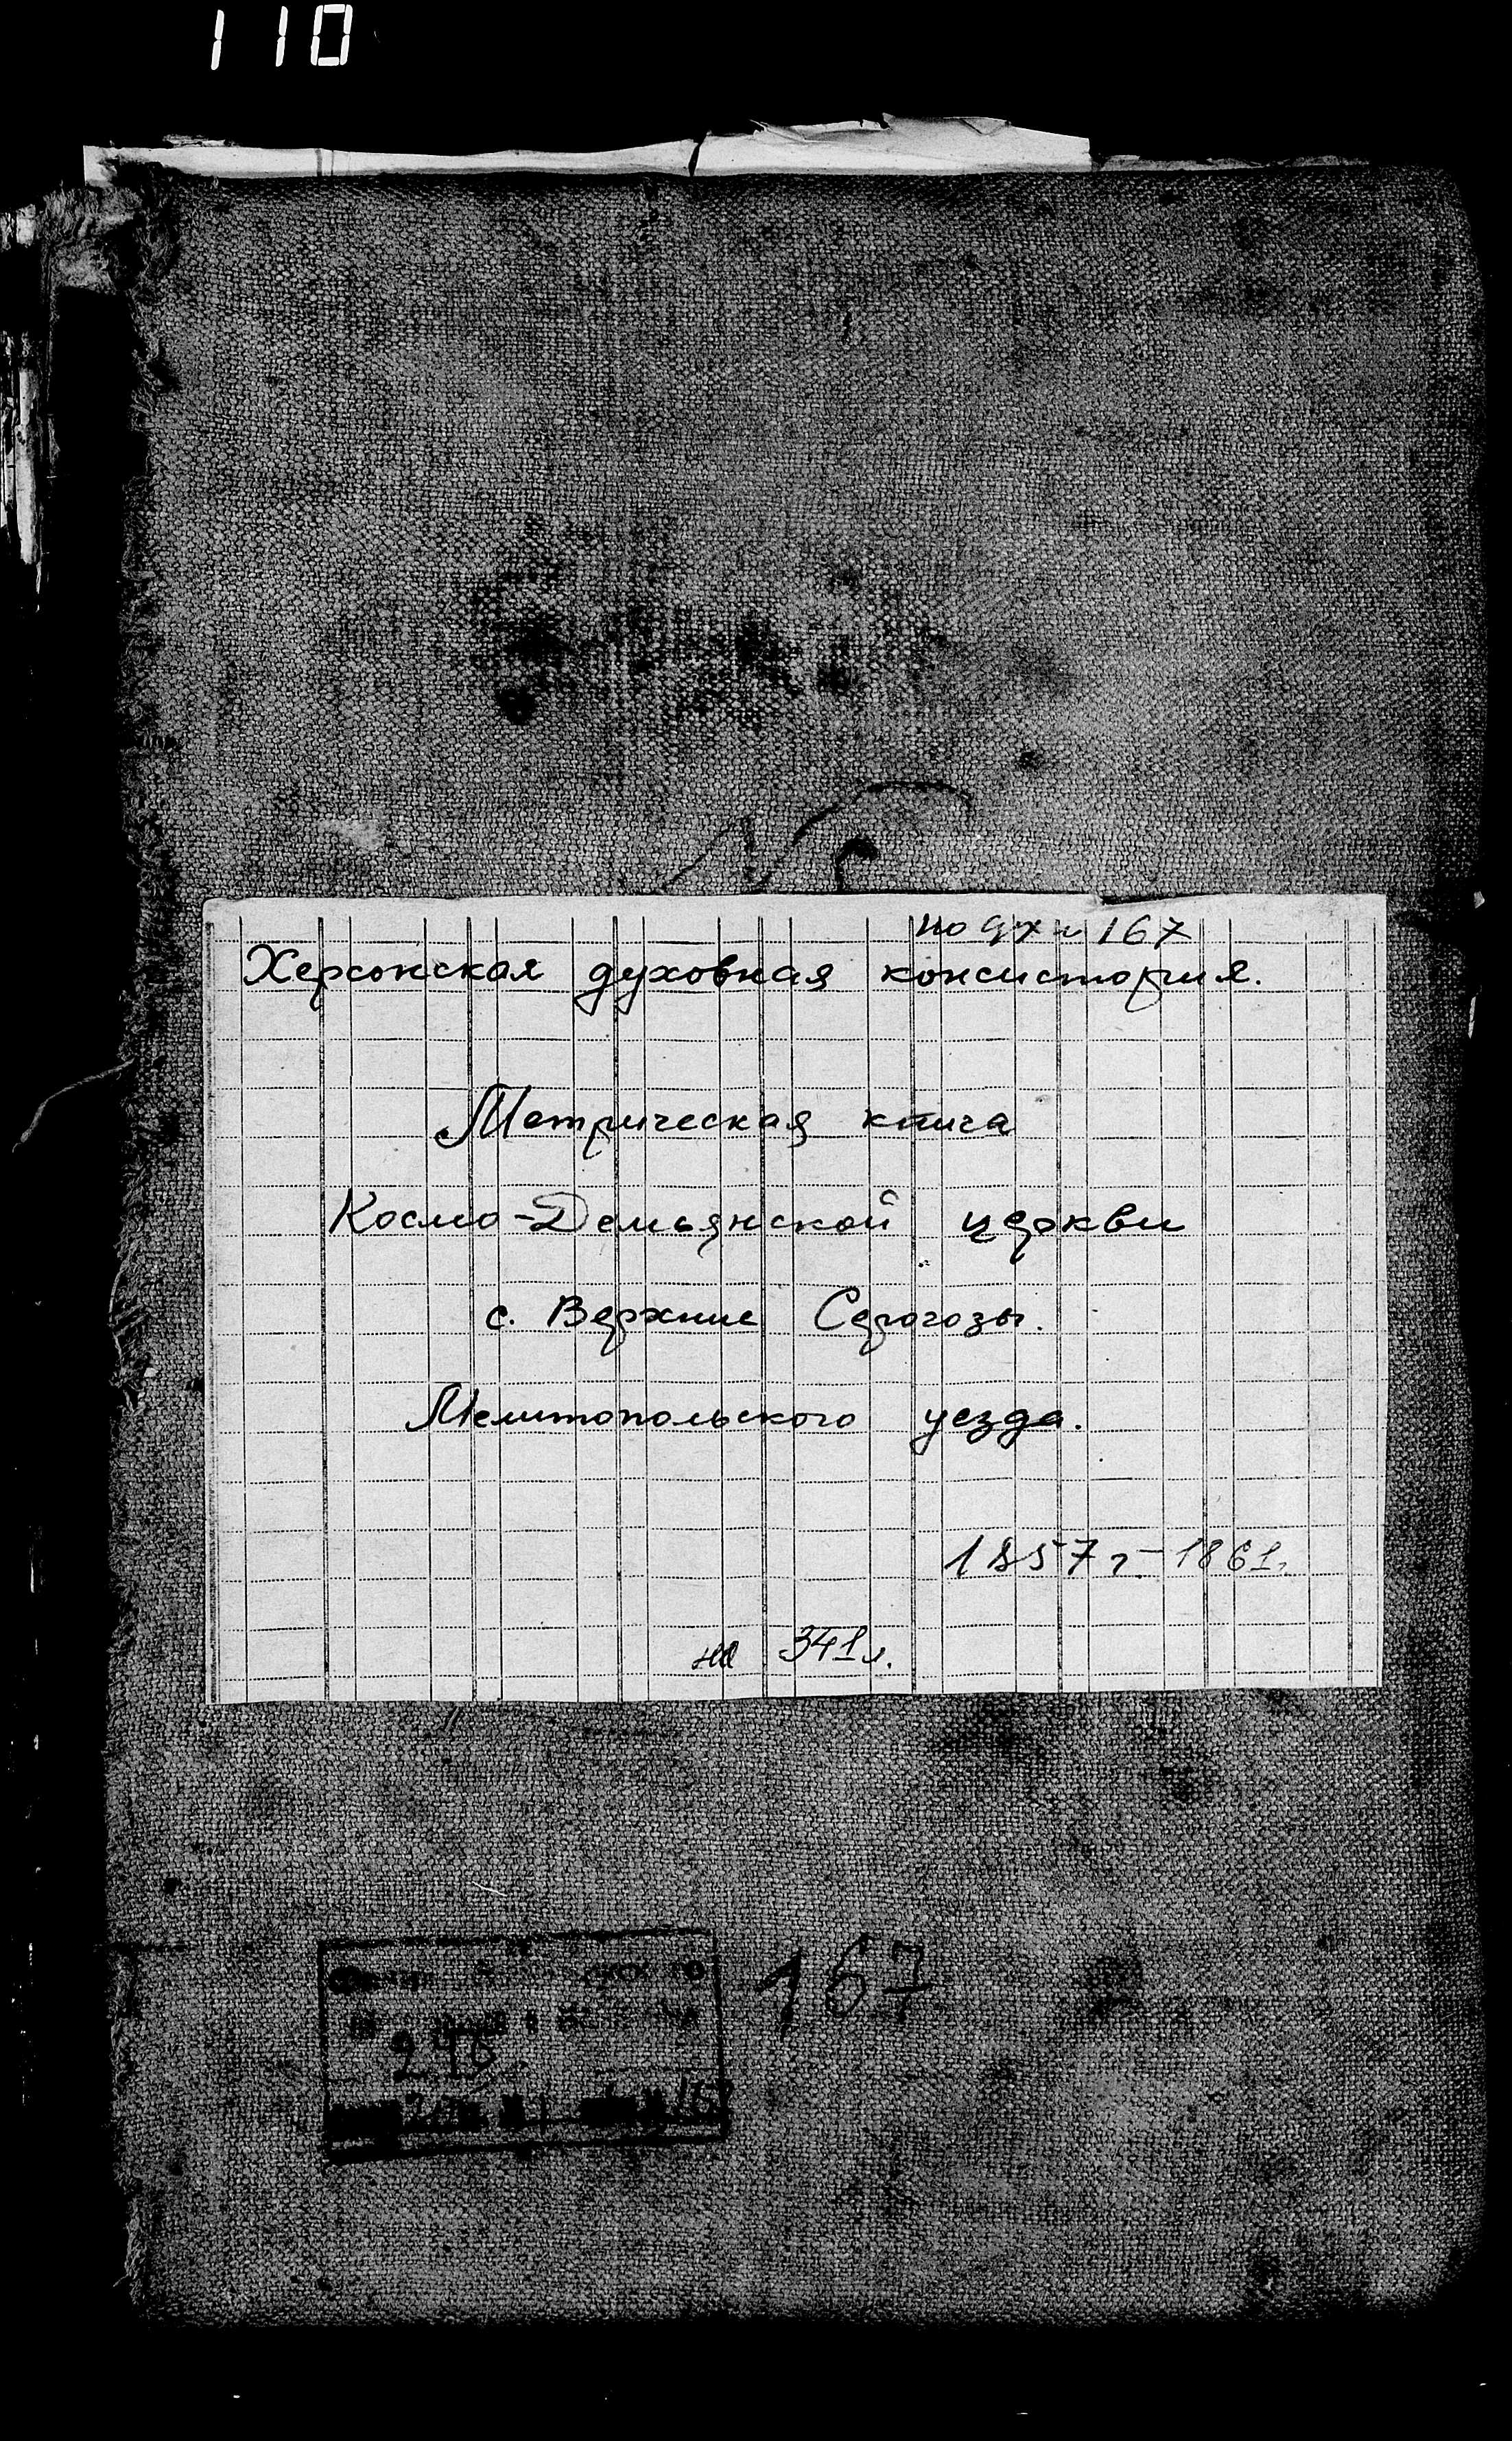 110
167
Херсонская духовная консистория.
Метрическая книга
Космо-Демьянской церкви
с. Верхние Серогозы.
Мелитопольского уезда.
1857 г. - 1861 г.
на 341 л.
167